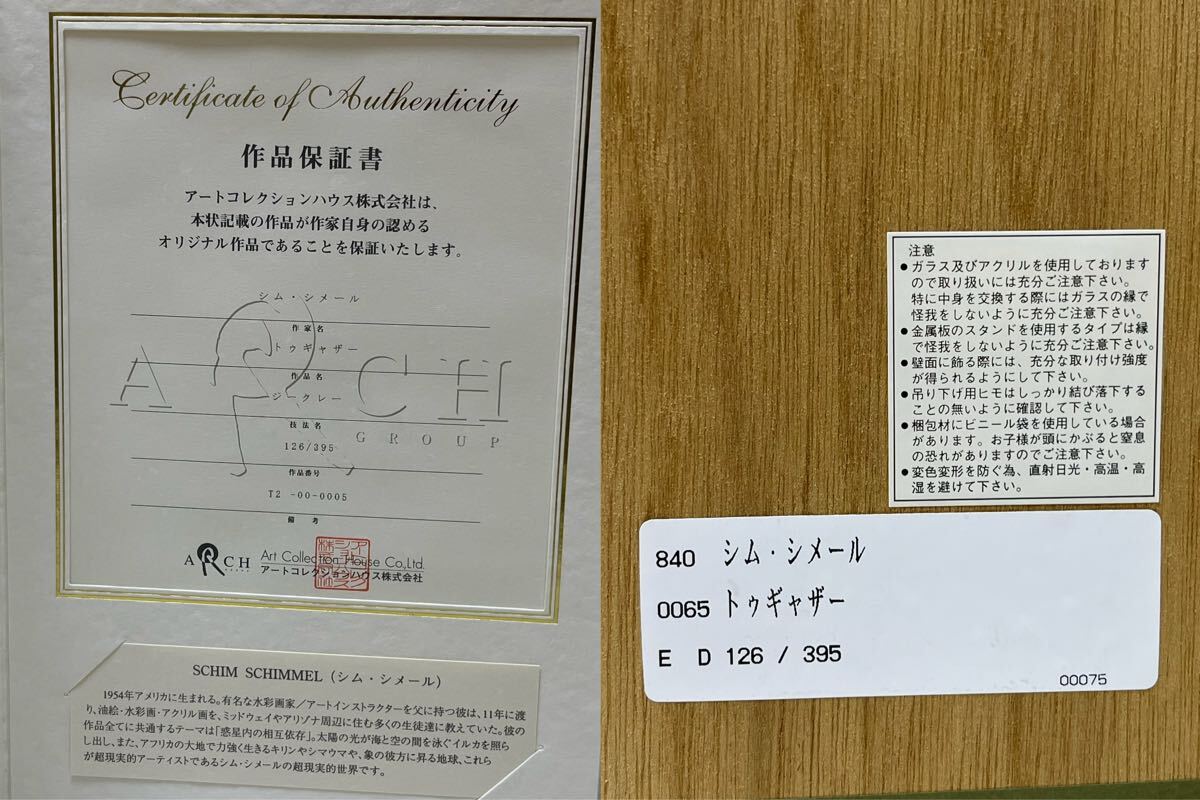 Certificate of Authenticity
作品保証書
アートコレクションハウス株式会社は、
本状記載の作品が作家自身の認める
オリジナル作品であることを保証いたします。
シム・シメール
作家名
トゥギャザー
作品名
ジークレー
技法名
126/395
作品番号
T2 -00-0005
備考
ARCH
GROUP
ARCH
Art Collection House Co.,Ltd.
アートコレクションハウス株式会社
SCHIM SCHIMMEL (シム・シメール)
1954年アメリカに生まれる。有名な水彩画家/アートインストラクターを父に持つ彼は、11年に渡
り、油絵・水彩画・アクリル画を、ミッドウェイやアリゾナ周辺に住む多くの生徒達に教えていた。彼の
作品全てに共通するテーマは「惑星内の相互依存」。太陽の光が海と空の間を泳ぐイルカを照ら
し出し、また、アフリカの大地で力強く生きるキリンやシマウマや、象の彼方に昇る地球、これら
が超現実的アーティストであるシム・シメールの超現実的世界です。
注意
●ガラス及びアクリルを使用しております
ので取り扱いには充分ご注意下さい。
特に中身を交換する際にはガラスの縁で
怪我をしないように充分ご注意下さい。
●金属板のスタンドを使用するタイプは縁
で怪我をしないように充分ご注意下さい。
●壁面に飾る際には、充分な取り付け強度
が得られるようにして下さい。
●吊り下げ用ヒモはしっかり結び落下する
ことの無いように確認して下さい。
●梱包材にビニール袋を使用している場合
があります。お子様が頭にかぶると窒息
の恐れがありますのでご注意下さい。
●変色変形を防ぐ為、直射日光・高温・高
湿を避けて下さい。
840 シム・シメール
0065 トゥギャザー
E D 126 / 395
00075